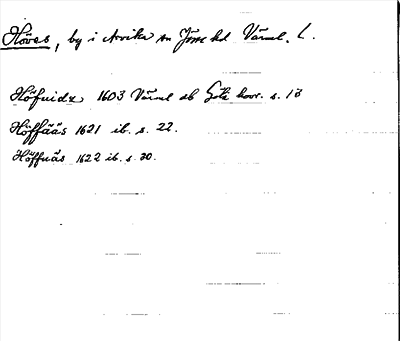 Höves, by i Arvika sn Jösse hd Värml. L.
Höfnidz 1603 Värml ab Göta hovr. s. 18
Höffääs 1621 ib. s. 22.
Höffnäs 1622 ib. s. 30.